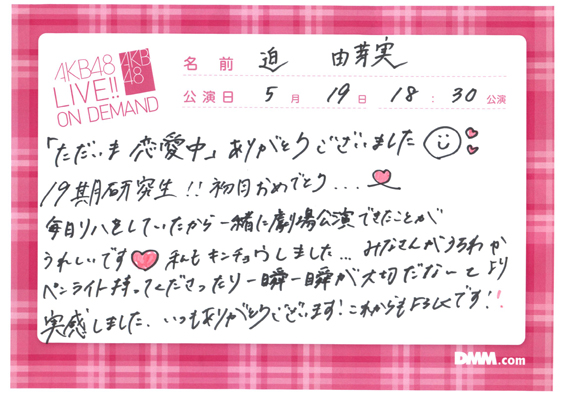 AKB48
LIVE!!
ON DEMAND
AKB
48
名前 迫 由芽実
公演日 5月19日 18:30公演
「ただいま 恋愛中」ありがとうございました
19期研究生!! 初日おめでとう...
毎日リハをしていたから一緒に劇場公演できたことが
うれしいです 私もキンチョウしました... みなさんが うちわ か
ペンライト持ってくださったり一瞬一瞬が大切だなーと より
実感しました. いつもありがとうございます! これからも よろしくです!!
DMM.com